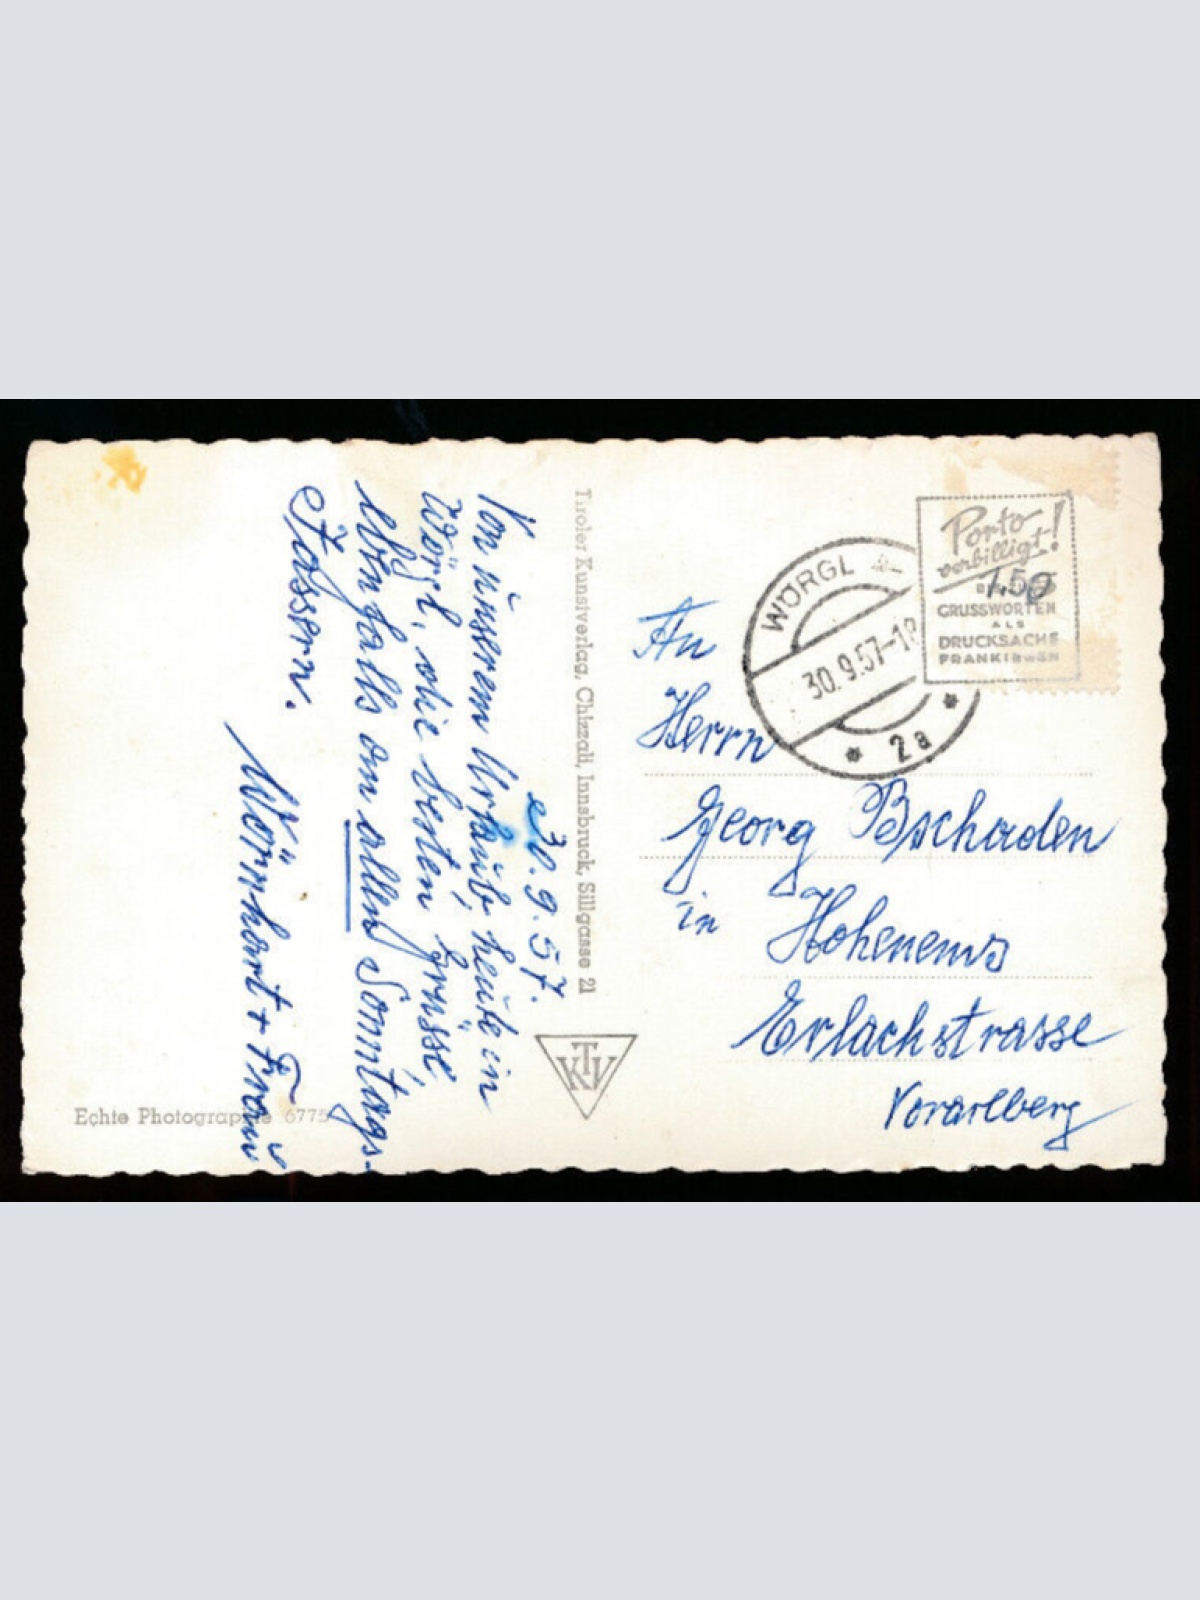 30.9.57.
Von unserem Urlaub, heute in
Wörgl, die besten Grüsse,
ebenfalls an allen Sonntags-
Jassern.
+ Frau
Tiroler Kunstverlag, Chizzali, Innsbruck, Sillgasse 21
KTV
Echte Photographie 6775
WÖRGL
30.9.57-18
* 2a *
Porto
verbilligt!
1.50
GRUSSWORTEN
ALS
DRUCKSACHE
FRANKIEREN
An
Herrn
Georg Bschaden
in Hohenems
Erlachstrasse
Vorarlberg